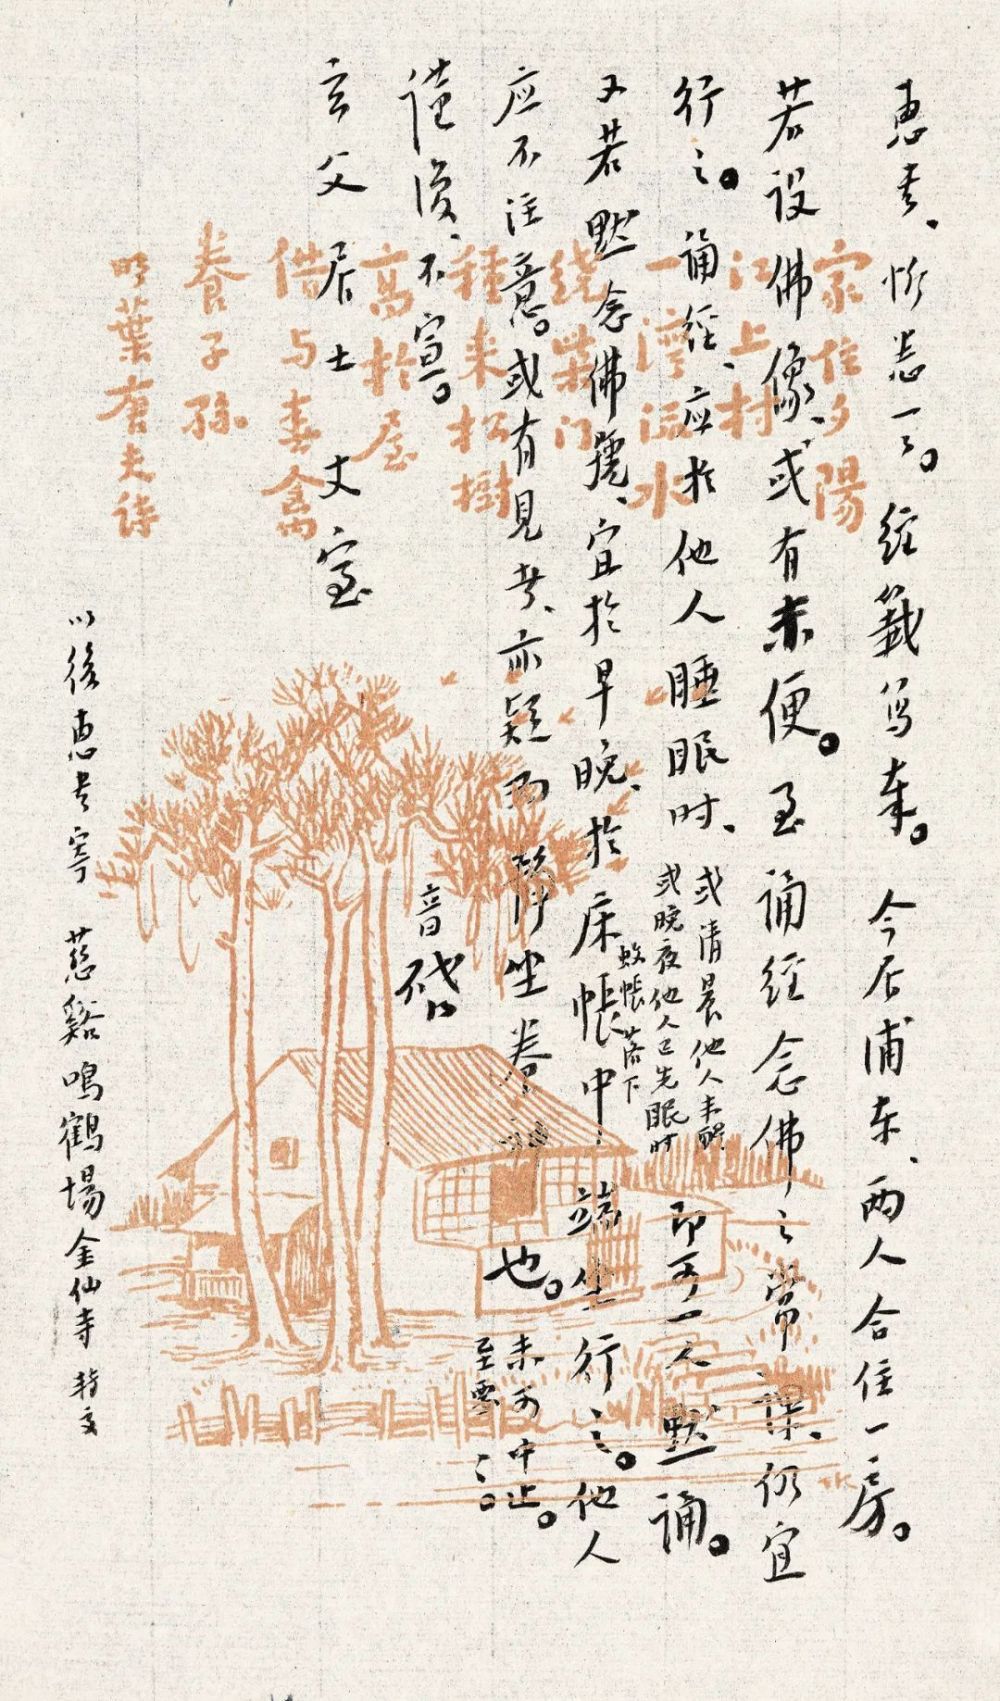 惠書、忻悉一一。經籤寫奉。今居浦东、两人合住一房。
若设佛像、或有未便。至诵经念佛之常课、仍宜
行之。诵经、应於他人睡眠时、或清晨他人未醒
或晚夜他人已先眠时
蚊帐落下
即可一人默诵。
又若默念佛號、宜於早晚、於床帐中、端坐行之。他人
应不注意。或有見者、亦疑为静坐養也。
未可中止。
至要至要。
谨復、不宣。
音啓
玄父居士 丈室
以後惠書寄 慈谿鳴鶴場金仙寺 转交
家住夕陽
江上村
一灣流水
繞柴門
種来松樹
高於屋
借与春禽
養子孫
明葉唐夫诗